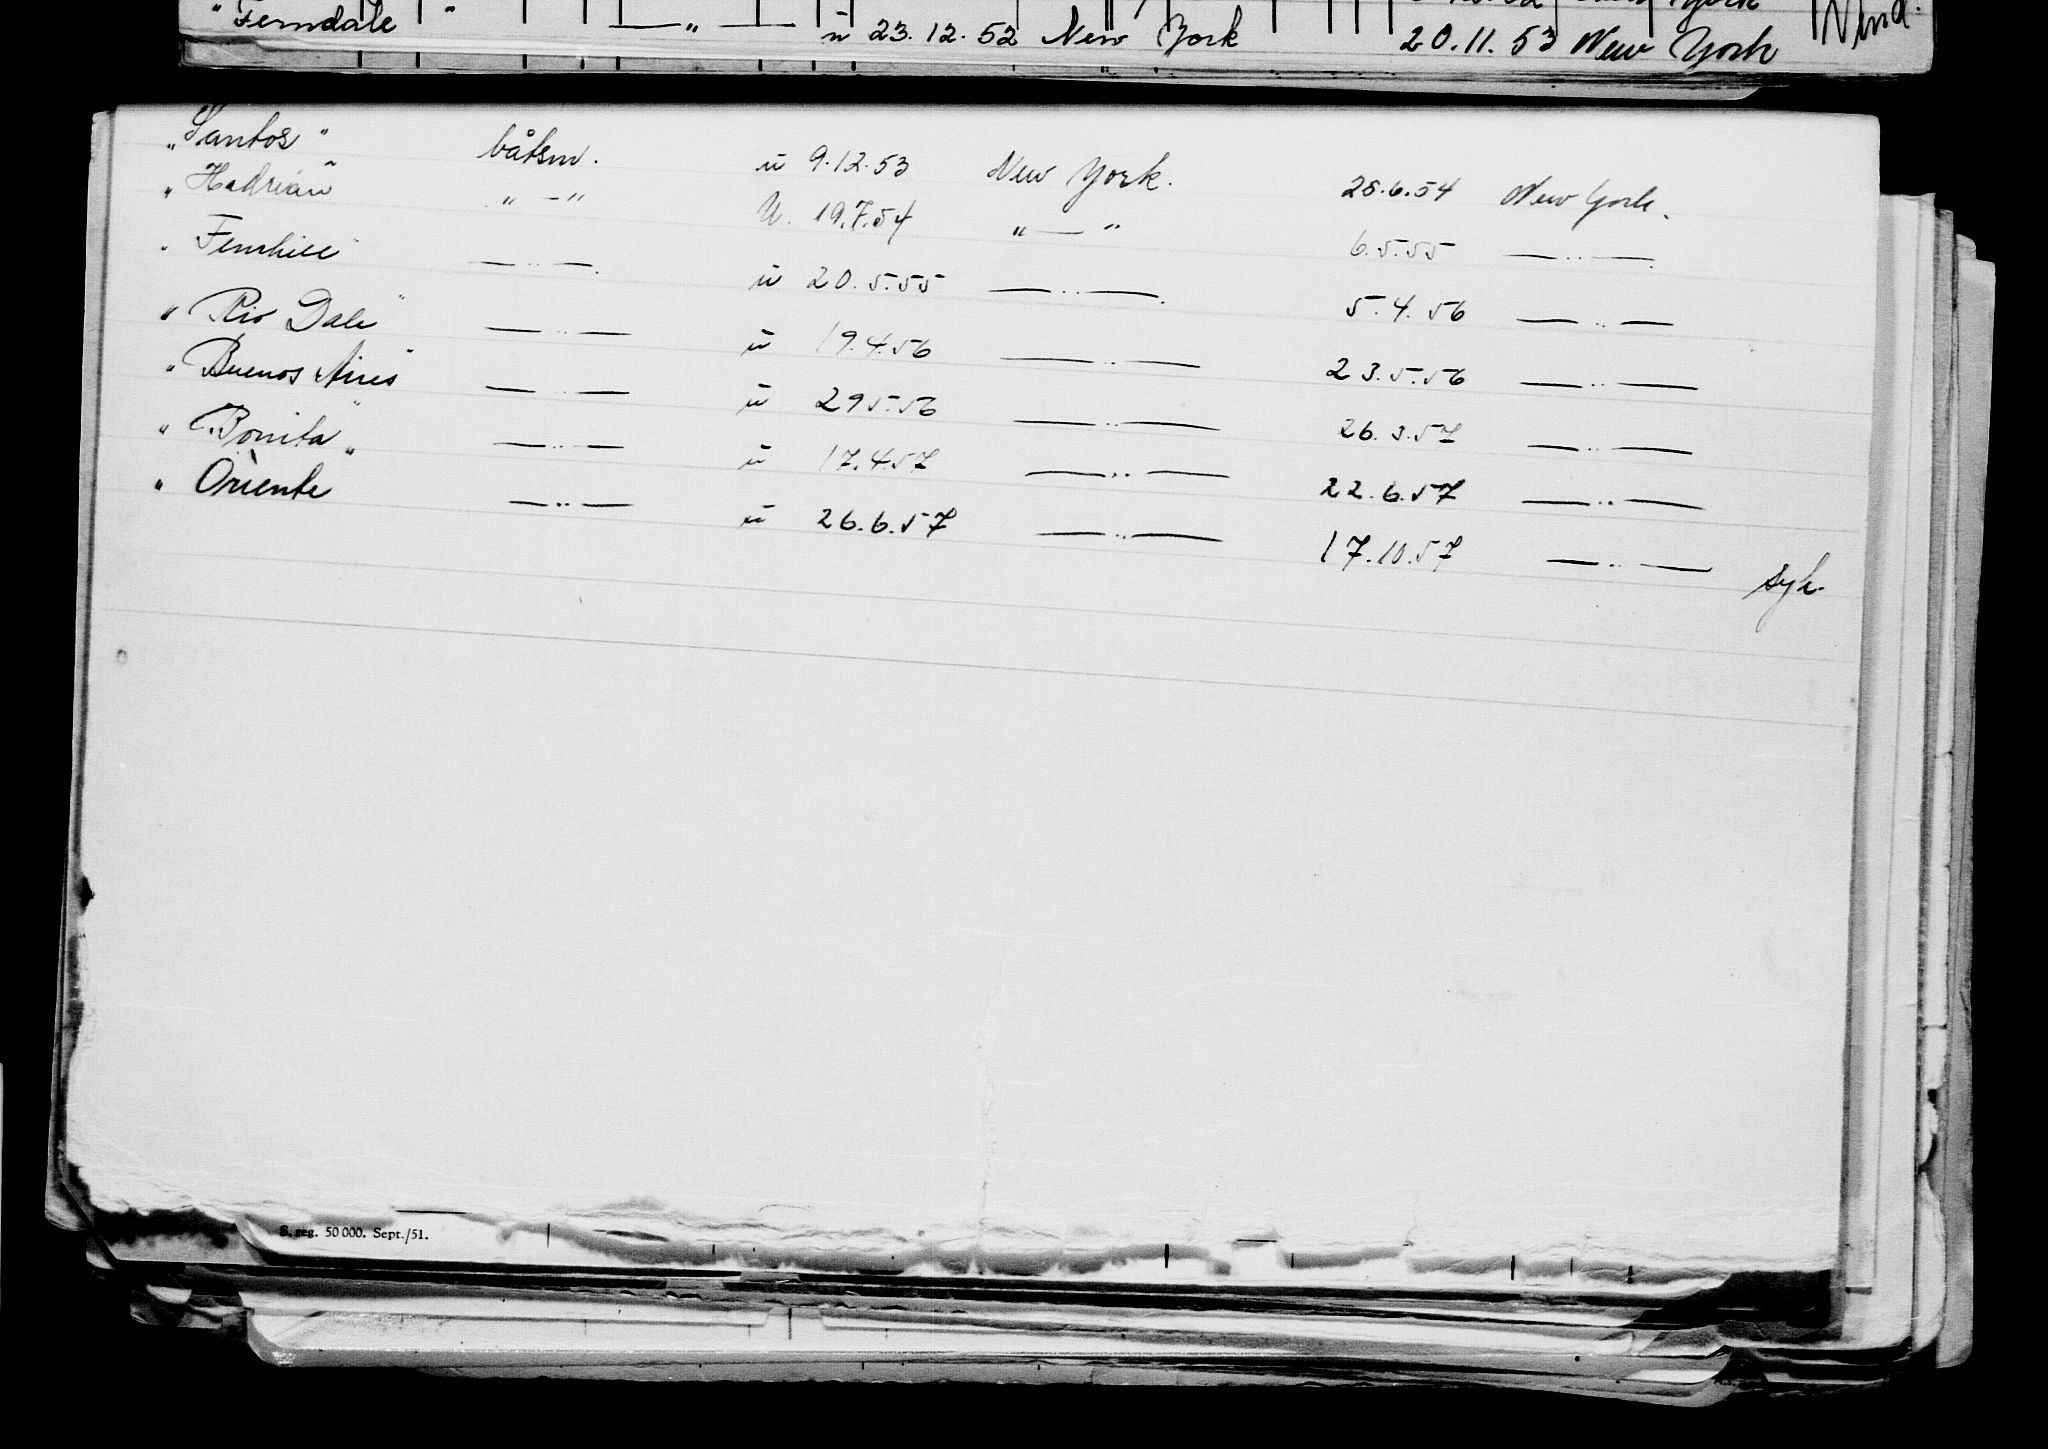 "Ferndale" — " — u 23.12.52 New York 20.11.53 New York
"Santos" båtsm. u 9.12.53 New York. 25.6.54 New York.
"Hadrian" " - " u. 19.7.54 " — " 6.5.55 — .. —
"Fernhill" — .. — u 20.5.55 — .. — 5.4.56 — .. —
"Rio Dale" — .. — u 19.4.56 — .. — 23.5.56 — .. —
"Buenos Aires" — .. — u 29 5.56 — .. — 26.3.57 — .. —
"Bonita" — .. — u 17.4.57 — .. — 22.6.57 — .. —
"Oriente — .. — u 26.6.57 — .. — 17.10.57 — .. — syk.
S. reg. 50 000. Sept./51.